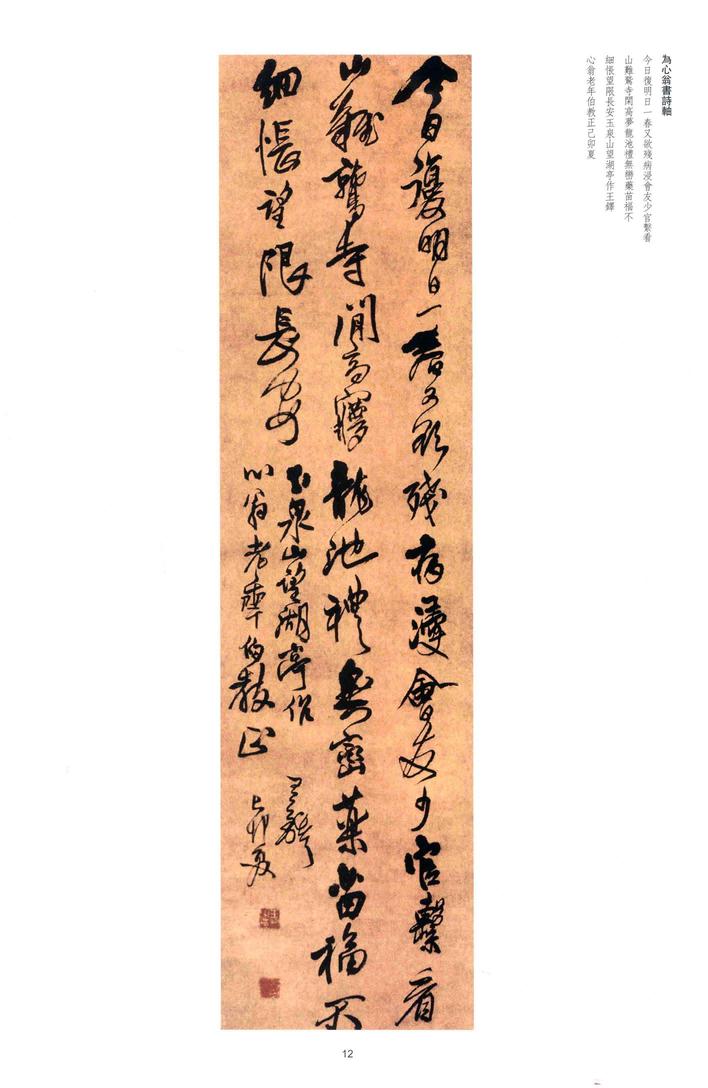 為心翁書詩軸
今日復明日一春又欲殘病浸會友少官繫看
山難鷲寺閑高夢龍池禮無巒藥苗福不
細悵望限長安玉泉山望湖亭作王鐸
心翁老年伯教正己卯夏
今日復明日一春又欲殘病漫會友少官繫看
山難鷲寺閒高夢龍池禮無巒藥苗福不
細悵望限長安
玉泉山望湖亭作 王鐸
心翁老年伯教正 己卯夏
12